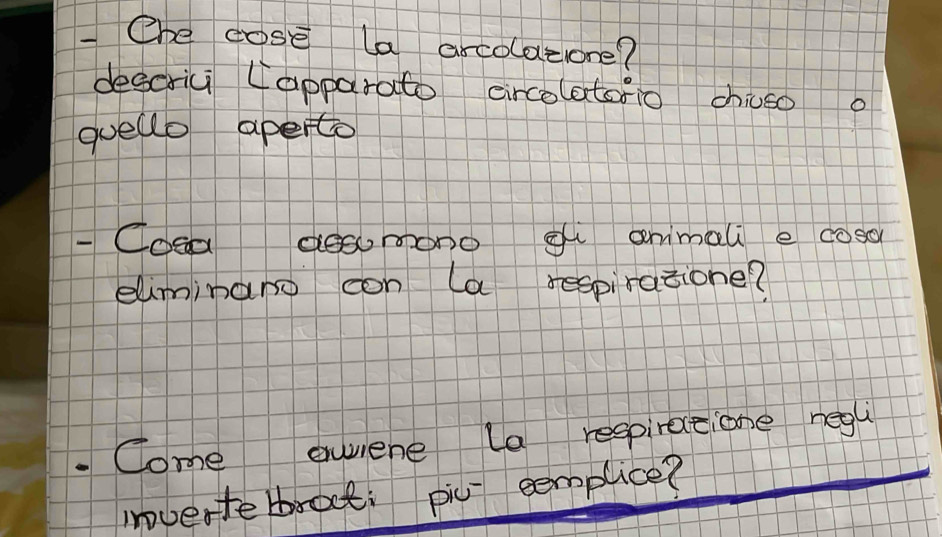 - Che cos'è la circolazione?
descrivi L'apparato circolatorio chiuso o
quello aperto
- Cosa assumono gli animali e cosa
eliminano con la respirazione?
- Come avviene la respirazione negli
invertebrati più semplice?